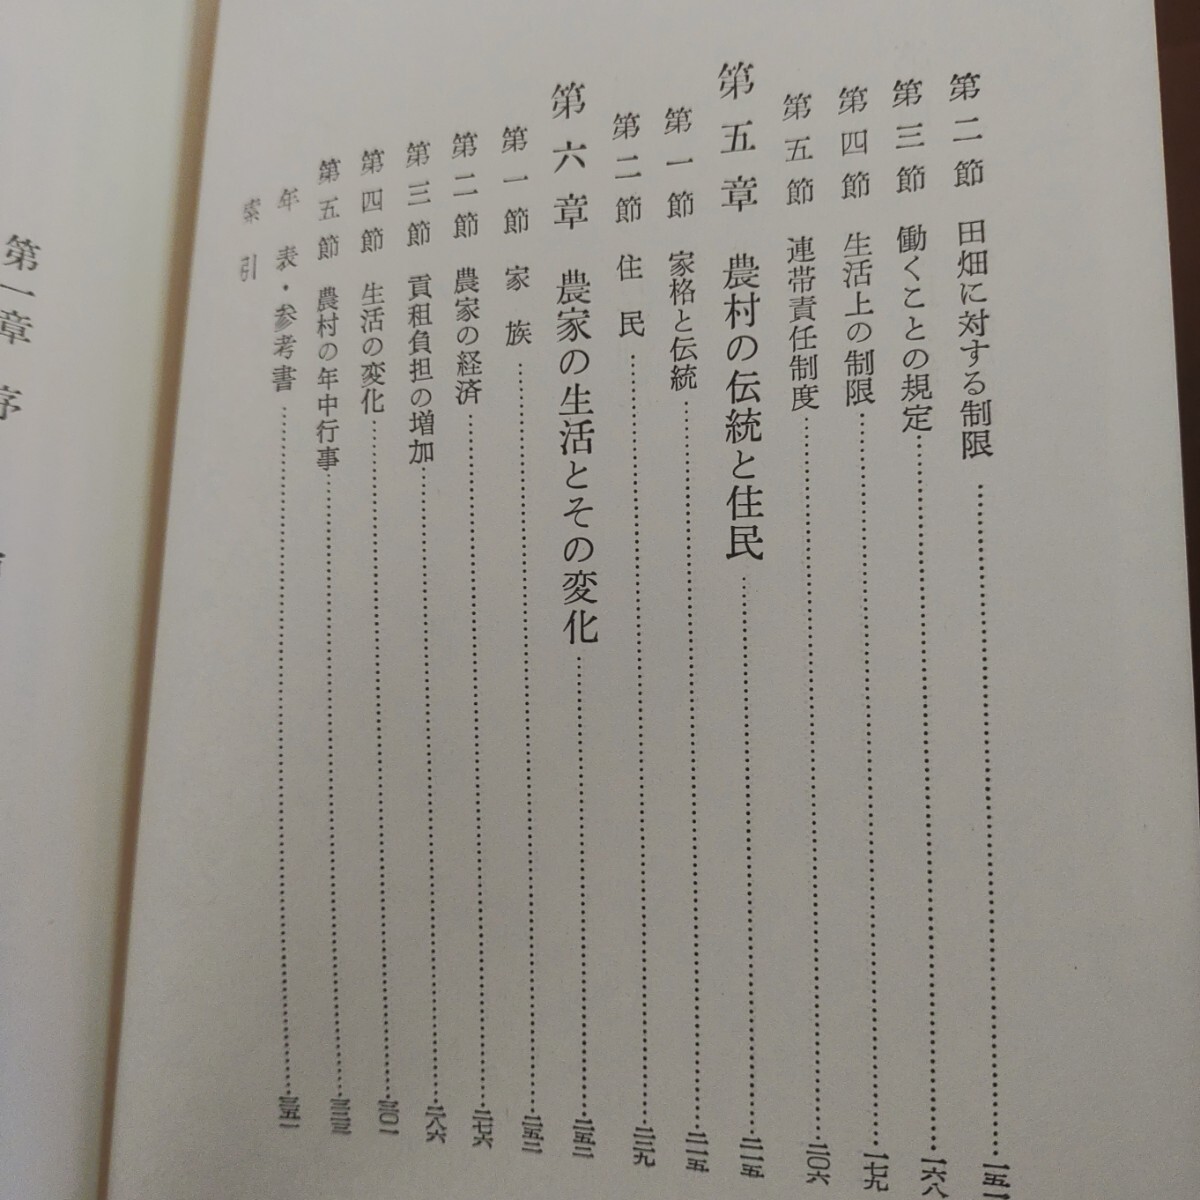 第二節 田畑に対する制限……一五一
第三節 働くことの規定……一六八
第四節 生活上の制限……一七九
第五節 連帯責任制度……二〇六
第五章 農村の伝統と住民……二一五
第一節 家格と伝統……二一五
第二節 住民……二三九
第六章 農家の生活とその変化……二五二
第一節 家族……二五二
第二節 農家の経済……二七六
第三節 貢租負担の増加……二八六
第四節 生活の変化……三〇一
第五節 農村の年中行事……
年表・参考書……三五一
索引
第一章 序